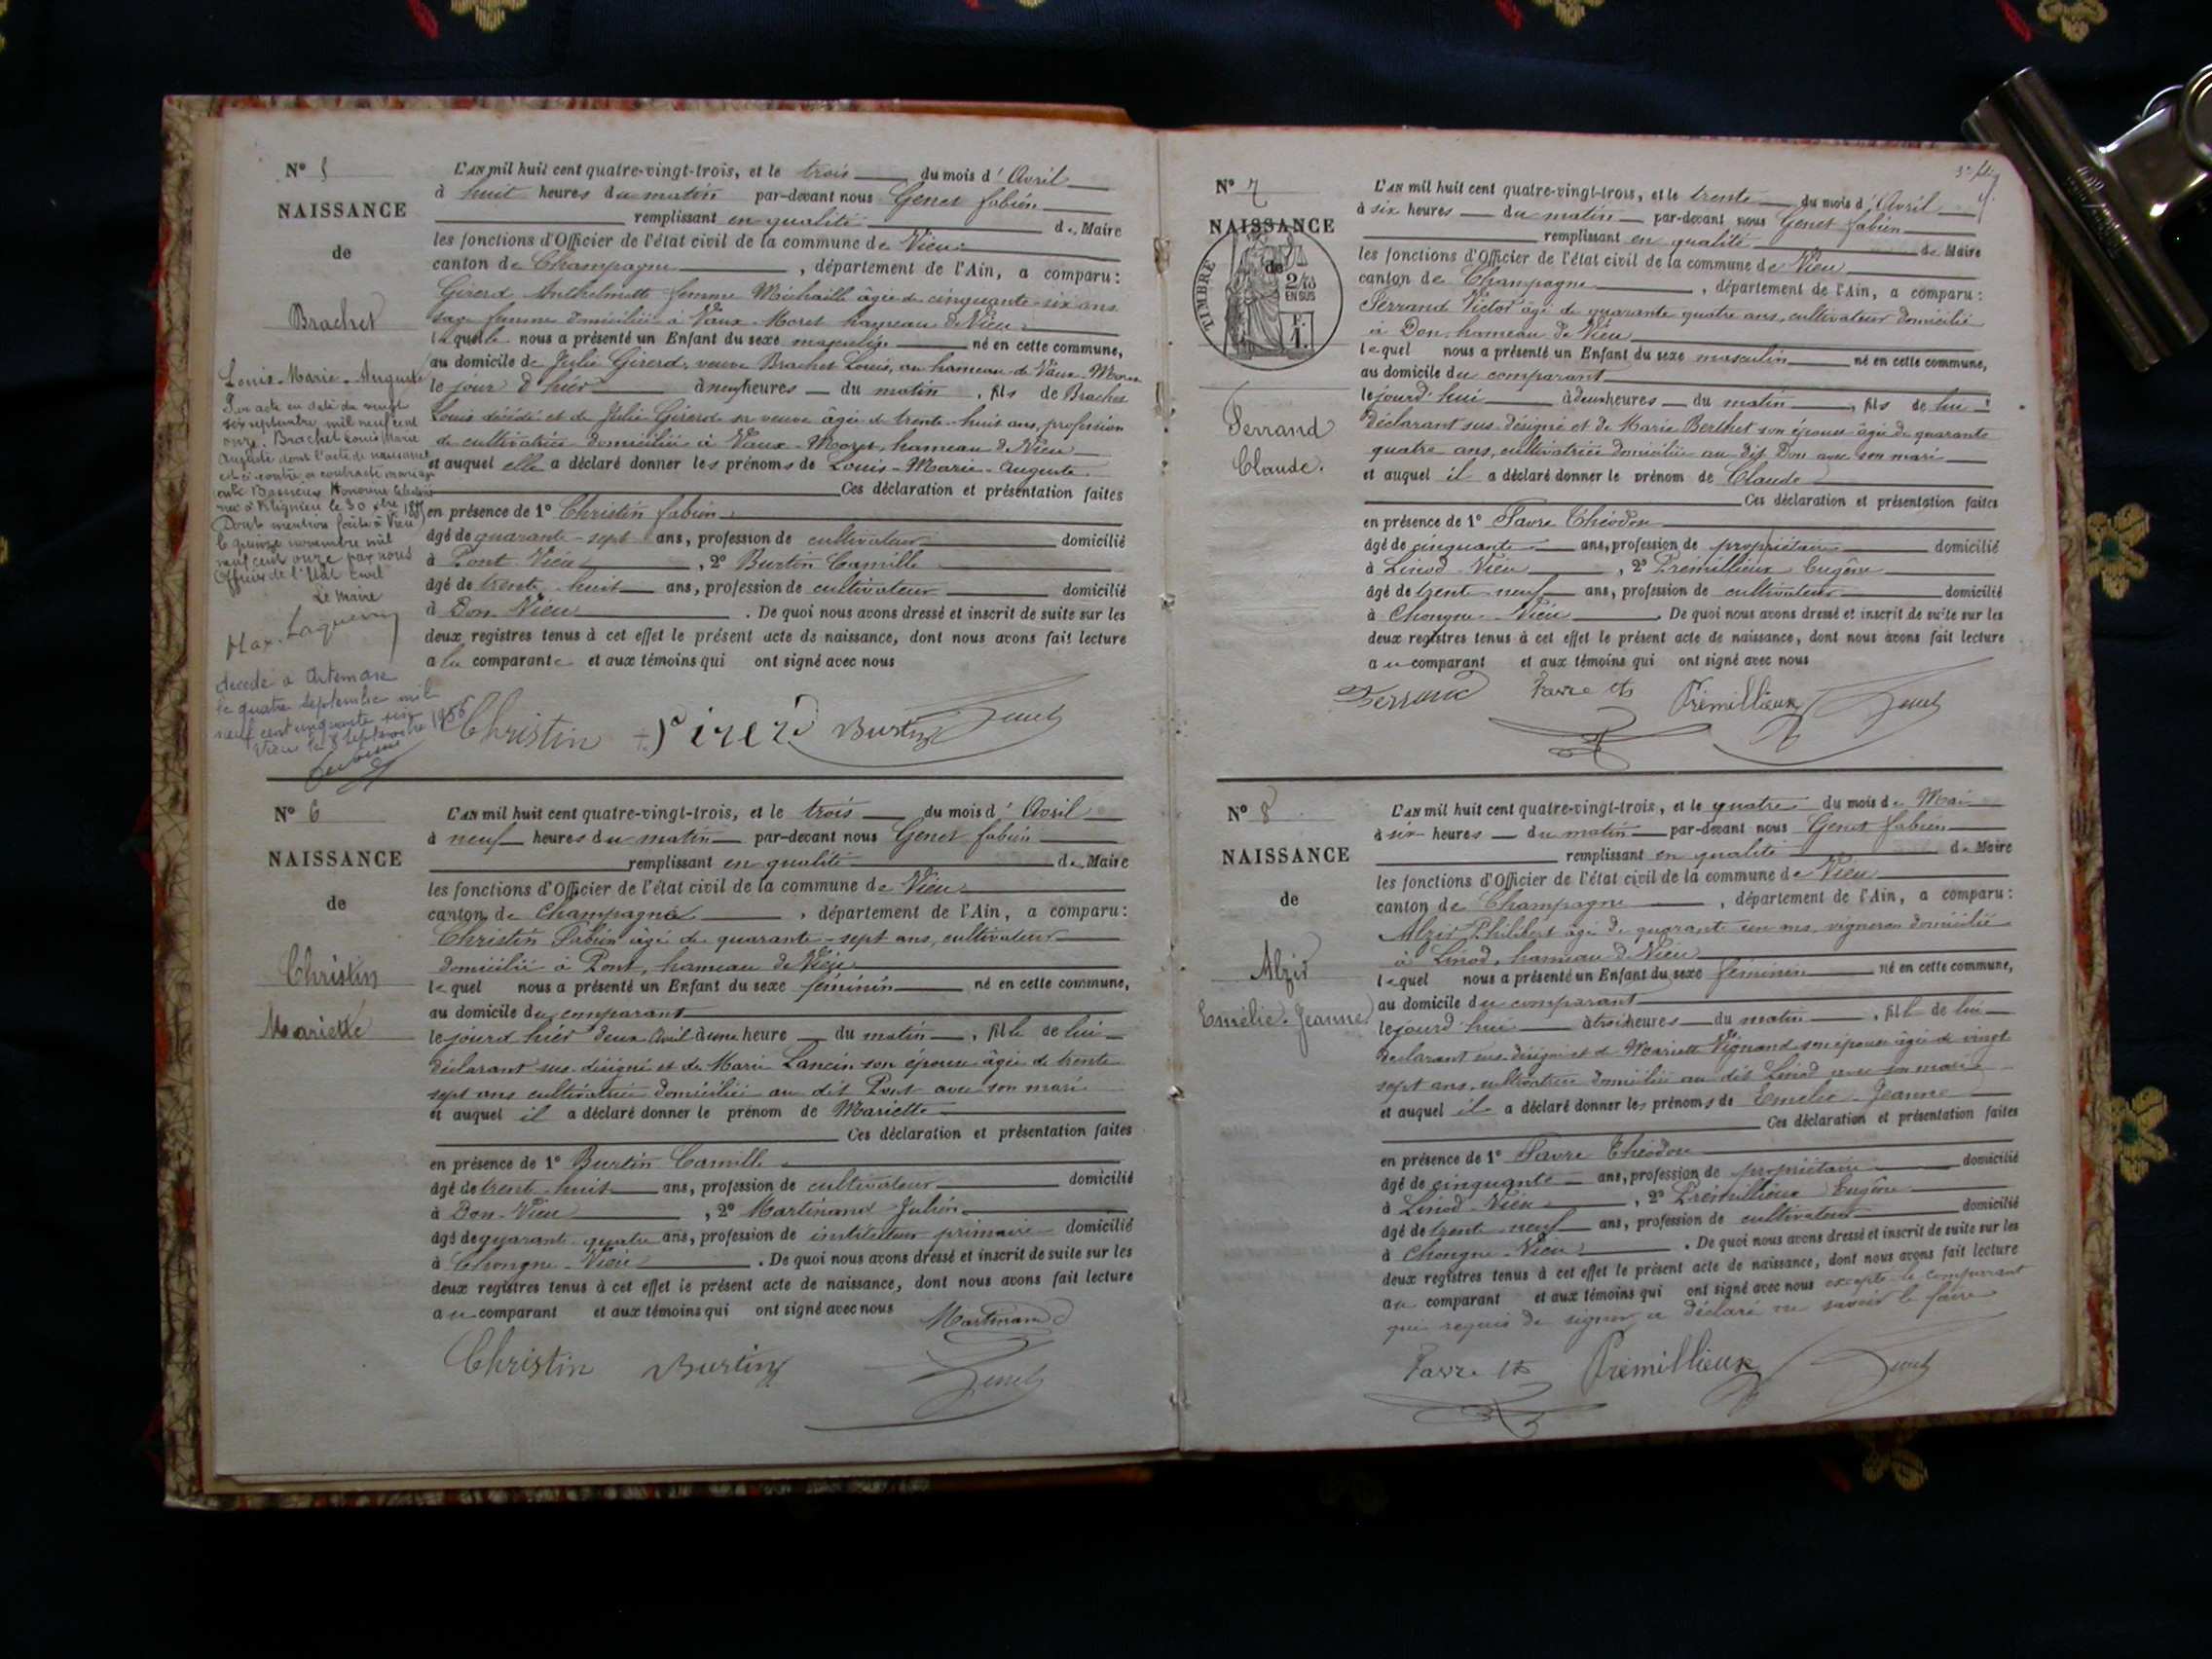 N° 5
NAISSANCE
de
Brachet
Louis-Marie-Auguste
Par acte en date du vingt
six septembre mil neuf cent
onze, Brachet Louis Marie
Auguste dont l'acte de naissance
est ci-contre a contracté mariage
avec Honorine
née à le 30 xbre
Dont mention faite à Vieu
le quinze novembre mil
neuf cent onze par nous
Officier de l'Etat civil
Le Maire
décédé à Artemare
le quatre Septembre mil
neuf cent cinquante six
Vieu le 8 Septembre 1956
L'AN mil huit cent quatre-vingt-trois, et le trois du mois d'Avril
à huit heures du matin par-devant nous Genet fabien
remplissant en qualité de Maire
les fonctions d'Officier de l'état civil de la commune de Vieu
canton de Champagne, département de l'Ain, a comparu:
Girerd Anthelmette femme Michaille âgée de cinquante-six ans
sage femme domiciliée à Vaux-Moret hameau de Vieu
laquelle nous a présenté un Enfant du sexe masculin né en cette commune,
au domicile de Julie Girerd, veuve Brachet Louis, au hameau de Vaux-Moret
le jour d'hier à neuf heures du matin, fils de Brachet
Louis décédé et de Julie Girerd sa veuve âgée de trente-huit ans, profession
de cultivatrice domiciliée à Vaux-Moret, hameau de Vieu
et auquel elle a déclaré donner les prénoms de Louis-Marie-Auguste
Ces déclaration et présentation faites
en présence de 1° Christin fabien
âgé de quarante-sept ans, profession de cultivateur domicilié
à Pont-Vieu, 2° Burtin Camille
âgé de trente-huit ans, profession de cultivateur domicilié
à Don-Vieu. De quoi nous avons dressé et inscrit de suite sur les
deux registres tenus à cet effet le présent acte de naissance, dont nous avons fait lecture
a la comparante et aux témoins qui ont signé avec nous
Christin Girerd Burtin Genet
N° 6
NAISSANCE
de
Christin
Mariette
L'AN mil huit cent quatre-vingt-trois, et le trois du mois d'Avril
à neuf heures du matin par-devant nous Genet fabien
remplissant en qualité de Maire
les fonctions d'Officier de l'état civil de la commune de Vieu
canton de Champagne, département de l'Ain, a comparu:
Christin Fabien âgé de quarante-sept ans, cultivateur
domicilié à Pont, hameau de Vieu
lequel nous a présenté un Enfant du sexe féminin né en cette commune,
au domicile du comparant
le jourd'hier deux Avril à une heure du matin, fille de lui
déclarant sus-désigné et de Marie Lancin son épouse âgée de trente
sept ans cultivatrice domiciliée au dit Pont avec son mari
et auquel il a déclaré donner le prénom de Mariette
Ces déclaration et présentation faites
en présence de 1° Burtin Camille
âgé de trente-huit ans, profession de cultivateur domicilié
à Don-Vieu, 2° Martinand Julien
âgé de quarante-quatre ans, profession de instituteur primaire domicilié
à Chongne-Vieu. De quoi nous avons dressé et inscrit de suite sur les
deux registres tenus à cet effet le présent acte de naissance, dont nous avons fait lecture
au comparant et aux témoins qui ont signé avec nous
Martinand
Christin Burtin Genet
N° 7
NAISSANCE
de
TIMBRE
2/10
EN SUS
F.
1.
Ferrand
Claude.
L'AN mil huit cent quatre-vingt-trois, et le trente du mois d'Avril
à six heures du matin par-devant nous Genet fabien
remplissant en qualité de Maire
les fonctions d'Officier de l'état civil de la commune de Vieu
canton de Champagne, département de l'Ain, a comparu:
Ferrand Victor âgé de quarante quatre ans, cultivateur domicilié
à Don, hameau de Vieu
lequel nous a présenté un Enfant du sexe masculin né en cette commune,
au domicile du comparant
le jourd'hui à deux heures du matin, fils de lui
déclarant sus-désigné et de Marie Berthet son épouse âgée de quarante
quatre ans, cultivatrice domiciliée au dit Don avec son mari
et auquel il a déclaré donner le prénom de Claude
Ces déclaration et présentation faites
en présence de 1° Favre Théodore
âgé de cinquante ans, profession de propriétaire domicilié
à Linod-Vieu, 2° Premillieux Eugène
âgé de trente-neuf ans, profession de cultivateur domicilié
à Chongne-Vieu. De quoi nous avons dressé et inscrit de suite sur les
deux registres tenus à cet effet le présent acte de naissance, dont nous avons fait lecture
au comparant et aux témoins qui ont signé avec nous
Ferrand Favre th Prémillieux Genet
N° 8
NAISSANCE
de
Alzir
Emélie-Jeanne
L'AN mil huit cent quatre-vingt-trois, et le quatre du mois de Mai
à six heures du matin par-devant nous Genet fabien
remplissant en qualité de Maire
les fonctions d'Officier de l'état civil de la commune de Vieu
canton de Champagne, département de l'Ain, a comparu:
Alzir Philibert âgé de quarante un ans, vigneron domicilié
à Linod, hameau de Vieu
lequel nous a présenté un Enfant du sexe féminin né en cette commune,
au domicile du comparant
le jourd'hui à trois heures du matin, fille de lui
déclarant sus-désigné et de Mariette Vignand son épouse âgée de vingt
sept ans, cultivatrice domiciliée au dit Linod avec son mari
et auquel il a déclaré donner les prénoms de Emélie-Jeanne
Ces déclaration et présentation faites
en présence de 1° Favre Théodore
âgé de cinquante ans, profession de propriétaire domicilié
à Linod-Vieu, 2° Prémillieux Eugène
âgé de trente-neuf ans, profession de cultivateur domicilié
à Chongne-Vieu. De quoi nous avons dressé et inscrit de suite sur les
deux registres tenus à cet effet le présent acte de naissance, dont nous avons fait lecture
au comparant et aux témoins qui ont signé avec nous excepté le comparant
qui requis de signer a déclaré ne savoir le faire
Favre th Prémillieux Genet